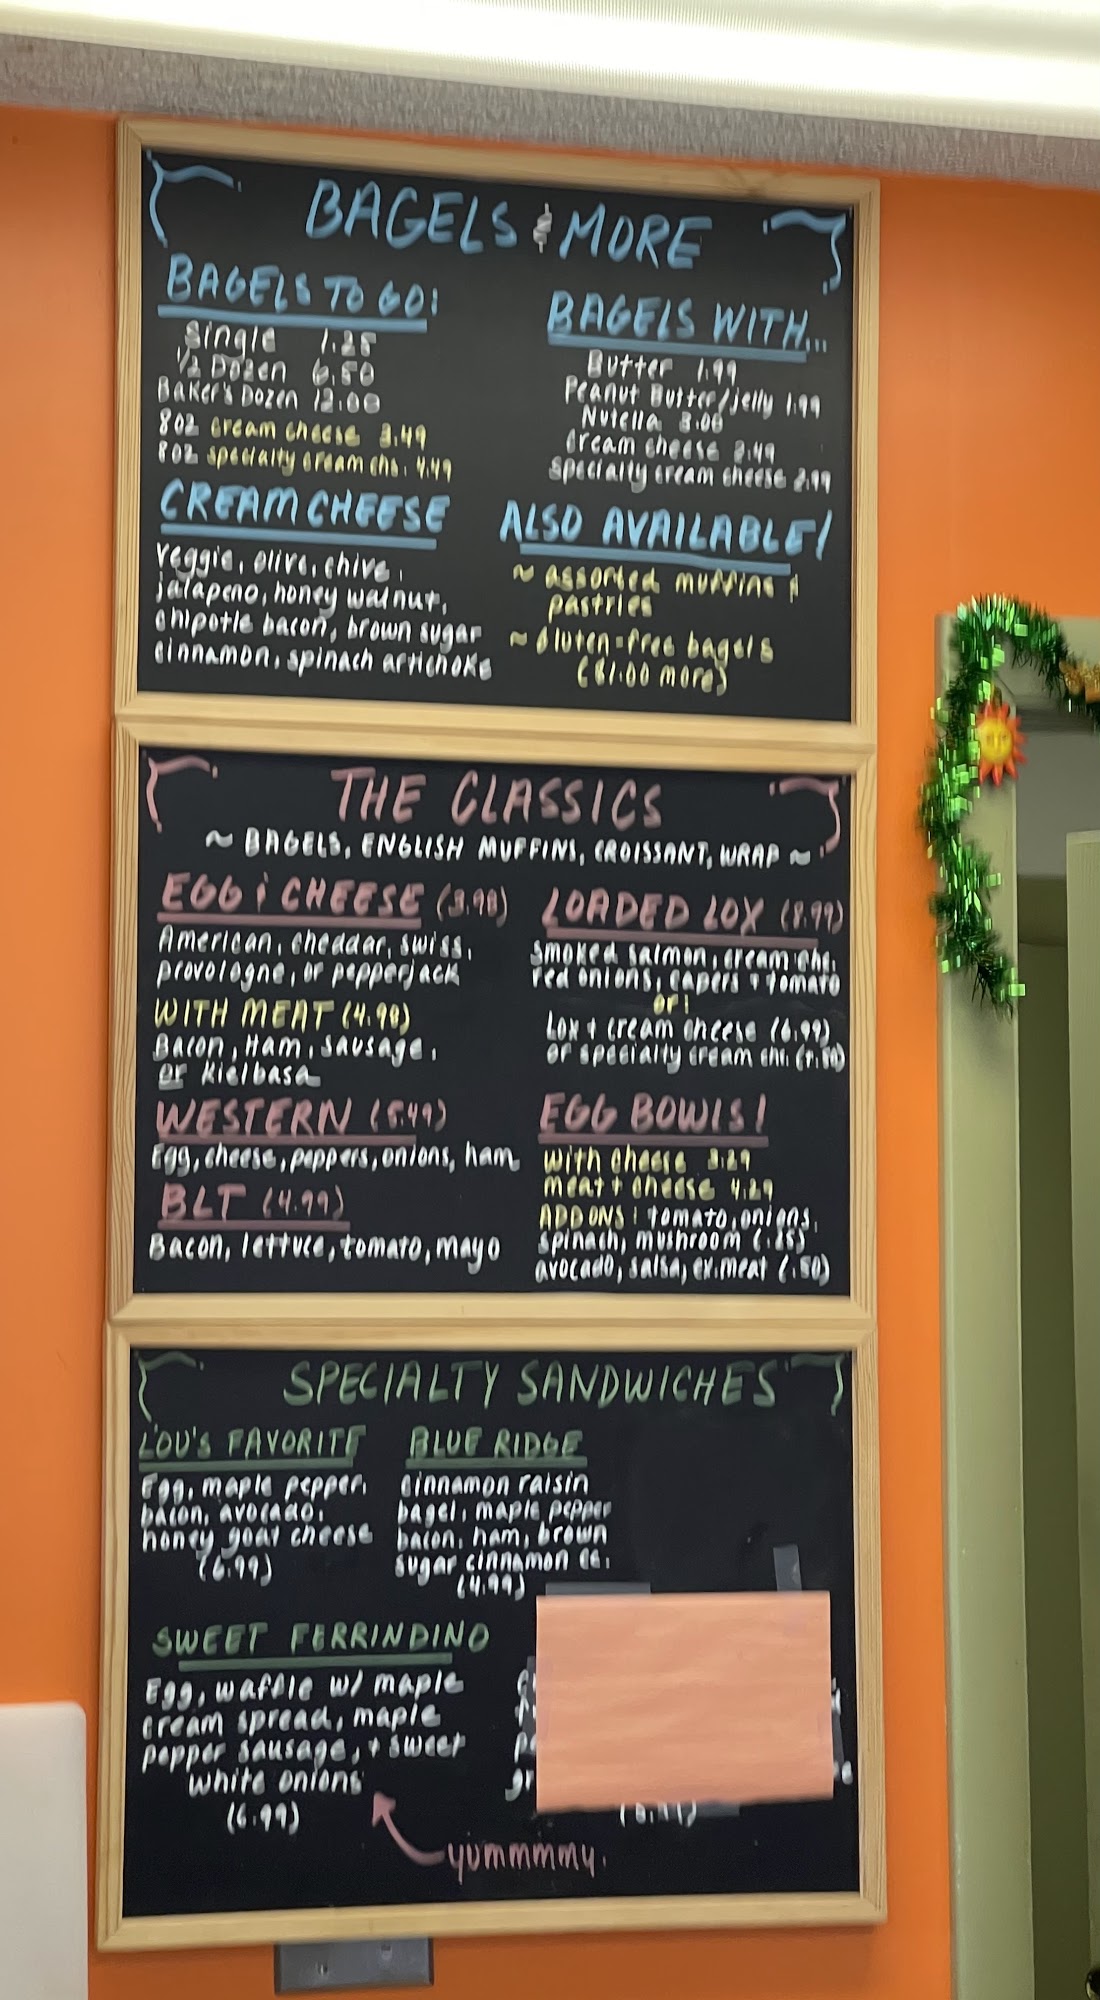 BAGELS & MORE
BAGELS TO GO:
Single 1.25
1/2 Dozen 6.50
Baker's Dozen 12.00
8oz cream cheese 3.49
8oz specialty cream chs. 4.49
BAGELS WITH...
Butter 1.99
Peanut Butter/jelly 1.99
Nutella 3.00
cream cheese 2.49
specialty cream cheese 2.99
CREAM CHEESE
veggie, olive, chive,
jalapeno, honey walnut,
chipotle bacon, brown sugar
cinnamon, spinach artichoke
ALSO AVAILABLE!
~ assorted muffins &
pastries
~ Gluten-free bagels
($1.00 more)
THE CLASSICS
~ BAGELS, ENGLISH MUFFINS, CROISSANT, WRAP ~
EGG & CHEESE (3.98)
American, cheddar, swiss,
provologne, or pepperjack
WITH MEAT (4.98)
Bacon, Ham, Sausage,
or Kielbasa
WESTERN (5.49)
Egg, cheese, peppers, onions, ham
BLT (4.99)
Bacon, lettuce, tomato, mayo
LOADED LOX (8.99)
smoked salmon, cream chs.
red onions, capers + tomato
or:
Lox + cream cheese (6.99)
or specialty cream chs. (7.50)
EGG BOWLS!
with cheese 3.29
meat + cheese 4.29
ADD ONS: tomato, onions,
spinach, mushroom (.25)
avocado, salsa, ex.meat (.50)
SPECIALTY SANDWICHES
LOU'S FAVORITE
Egg, maple pepper
bacon, avocado,
honey goat cheese
(6.99)
BLUE RIDGE
cinnamon raisin
bagel, maple pepper
bacon, ham, brown
sugar cinnamon cc.
(4.99)
SWEET FERRINDINO
Egg, waffle w/ maple
cream spread, maple
pepper sausage, + sweet
white onions
(6.99)
yummmmy.